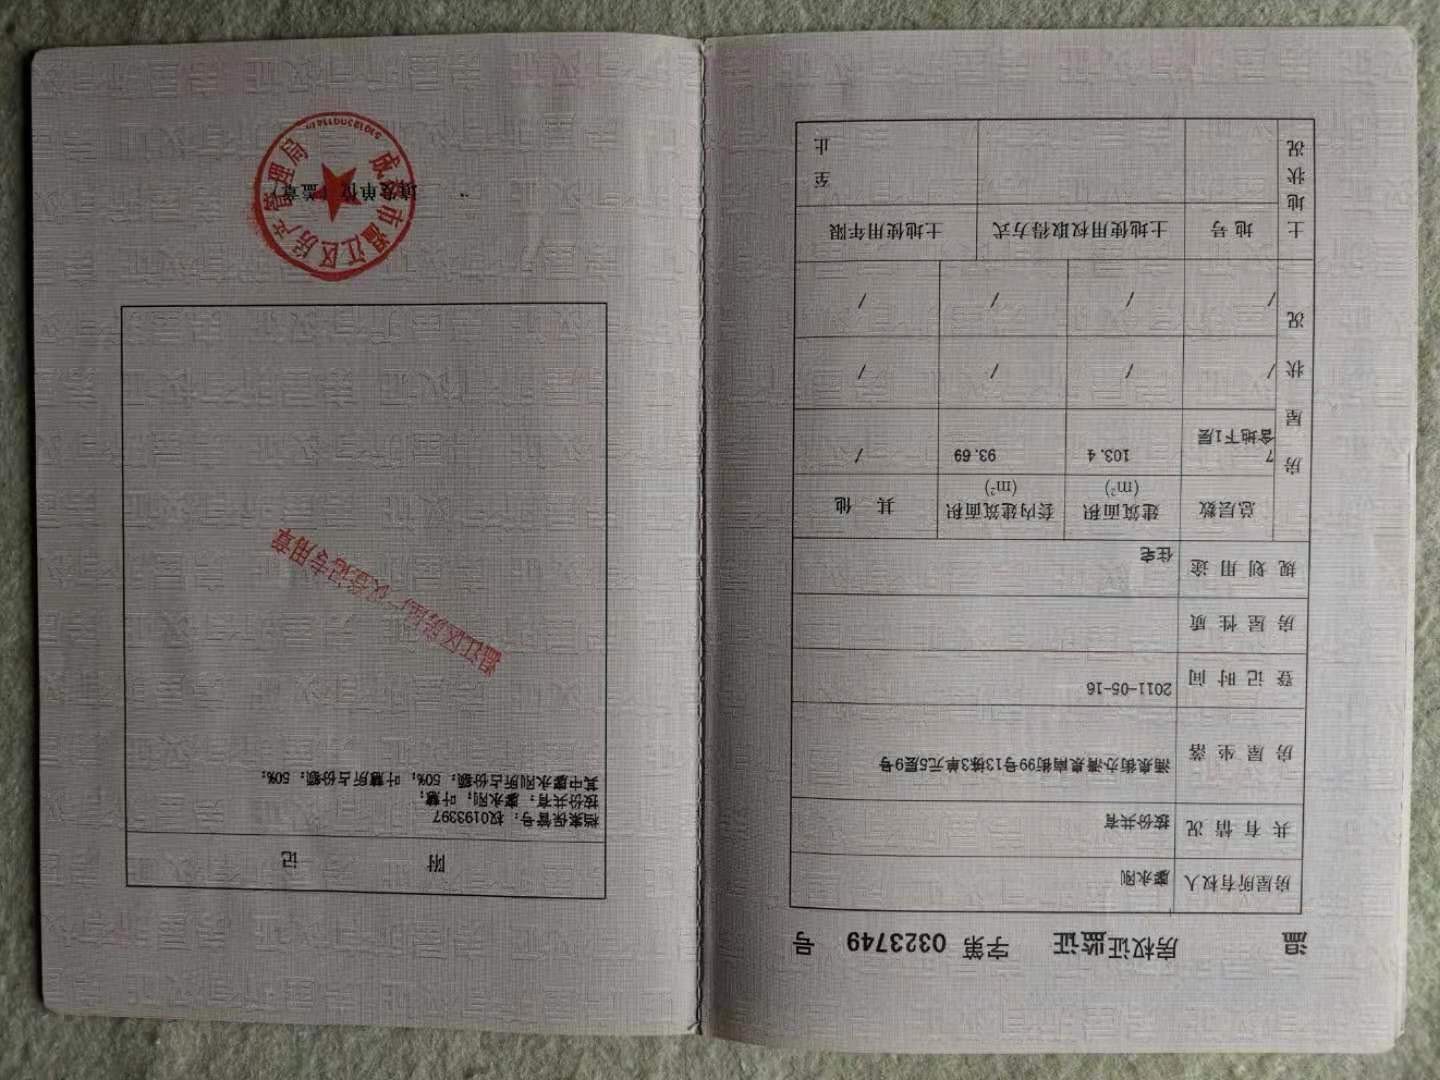 温 房权证监证 字第 0323749 号
房屋所有权人 廖永刚
共有情况 按份共有
房屋坐落 涌泉街办涌泉南街99号13栋3单元5层9号
登记时间 2011-05-16
房屋性质
规划用途 住宅
房屋状况
总层数 建筑面积(m²) 套内建筑面积(m²) 其他
7 103.4 93.69 /
含地下1层
/ / / /
/ / / /
土地状况
地号 土地使用权取得方式 土地使用年限
至
止
附 记
档案保管号：权0193397
按份共有：廖永刚；叶慧；
其中廖永刚所占份额：50%；叶慧所占份额：50%；
温江区房屋产权登记专用章
填发单位（盖章）
成都市温江区房产管理局